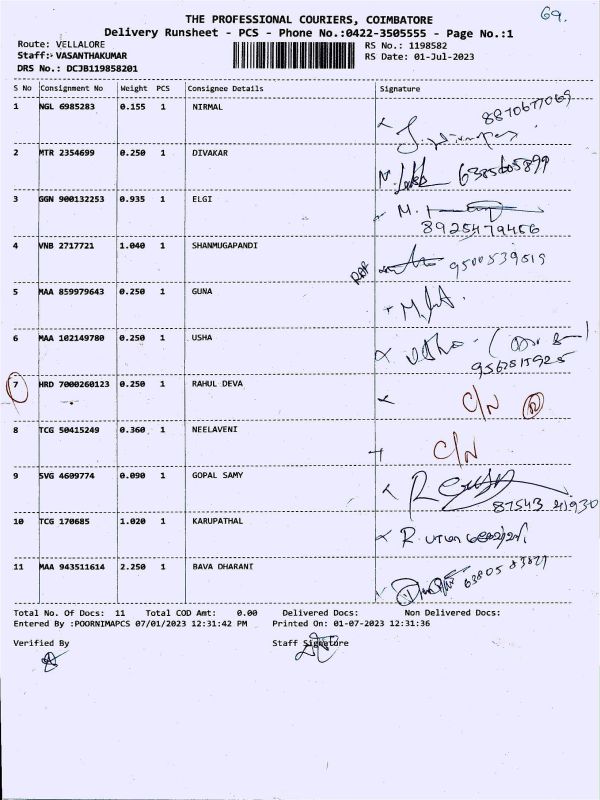 69.
THE PROFESSIONAL COURIERS, COIMBATORE
Delivery Runsheet - PCS - Phone No.:0422-3505555 - Page No.:1
Route: VELLALORE RS No.: 1198582
Staff: VASANTHAKUMAR RS Date: 01-Jul-2023
DRS No.: DCJB119858201
S No Consignment No Weight PCS Consignee Details Signature
1 NGL 6985283 0.155 1 NIRMAL 8870677069
2 MTR 2354699 0.250 1 DIVAKAR 6385605899
3 GGN 900132253 0.935 1 ELGI M.
8925479456
4 VNB 2717721 1.040 1 SHANMUGAPANDI 9500539519
5 MAA 859979643 0.250 1 GUNA
6 MAA 102149780 0.250 1 USHA
7 HRD 7000260123 0.250 1 RAHUL DEVA C/N
8 TCG 50415249 0.360 1 NEELAVENI C/N
9 SVG 4609774 0.090 1 GOPAL SAMY
10 TCG 170685 1.020 1 KARUPATHAL R.
11 MAA 943511614 2.250 1 BAVA DHARANI
Total No. Of Docs: 11 Total COD Amt: 0.00 Delivered Docs: Non Delivered Docs:
Entered By :POORNIMAPCS 07/01/2023 12:31:42 PM Printed On: 01-07-2023 12:31:36
Verified By Staff Signature